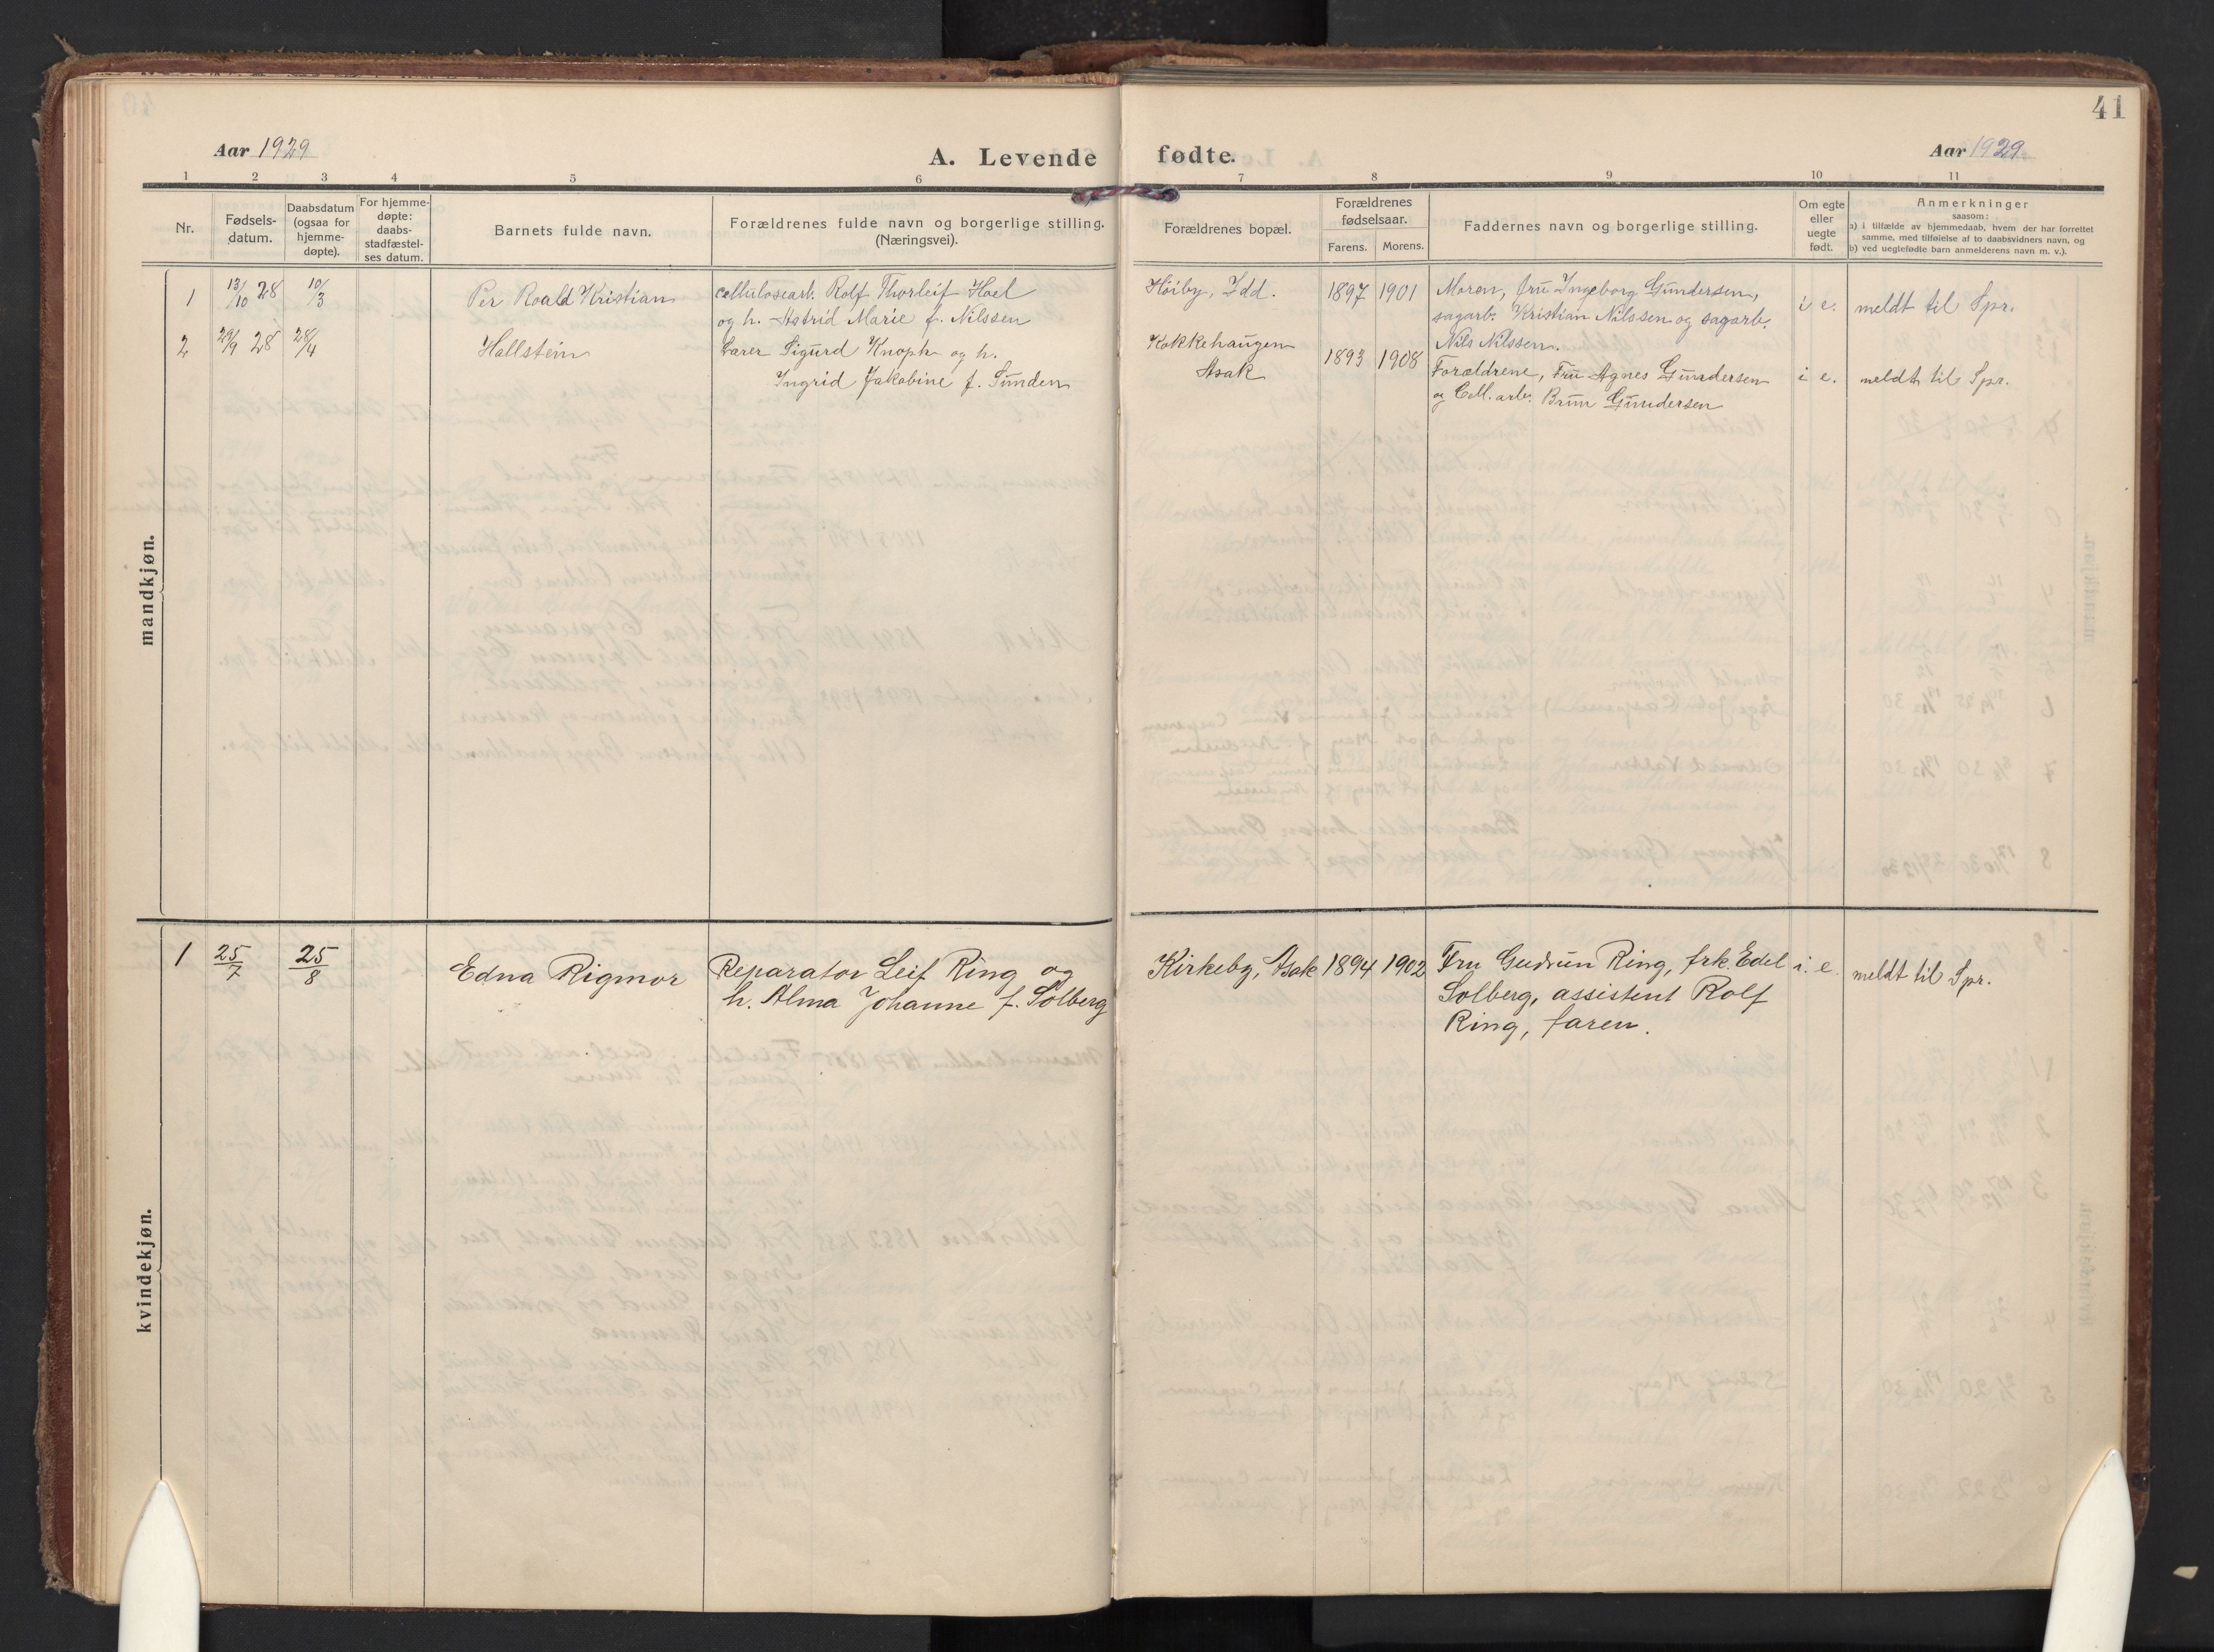 41
Aar 1929
A. Levende fødte.
Aar 1929
1 2 3 4 5 6 7 8 9 10 11
Nr.
Fødsels-
datum.
Daabsdatum
(ogsaa for
hjemme-
døpte).
For hjemme-
døpte:
daabs-
stadfæstel-
ses datum.
Barnets fulde navn.
Forældrenes fulde navn og borgerlige stilling.
(Næringsvei).
Forældrenes bopæl.
Forældrenes
fødselsaar.
Farens. Morens.
Faddernes navn og borgerlige stilling.
Om egte
eller
uegte
født.
Anmerkninger
saasom:
a) i tilfælde av hjemmedaab, hvem der har forrettet
samme, med tilføielse af to daabsvidners navn, og
b) ved uegtefødte barn anmelderens navn m. v.).
mandkjøn.
1
13/10 28
10/3
Per Roald Kristian
Cellulosearb. Rolf Thorleif Hoel
og h. Astrid Marie f. Nilssen
Höiby, Idd.
1897 1901
Moren, fru Ingeborg Gundersen,
sagarb. Kristian Nilssen og sagarb.
Nils Nilssen.
i e.
meldt til Spr.
2
29/9 28
28/4
Hallstein
Lærer Sigurd Knoph og h.
Ingrid Jakobine f. Sunden
Kokkehaugen
Asak
1893 1908
Forældrene, Fru Agnes Gundersen
og Cell. arb. Brun Gundersen
i e.
meldt til Spr.
kvindekjøn.
1
25/7
25/8
Edna Rigmor
Reparatør Leif Ring og
h. Alma Johanne f. Solberg
Kirkeby, Asak
1894 1902
Fru Gudrun Ring, frk. Edel
Solberg, assistent Rolf
Ring, faren.
i. e.
meldt til Spr.